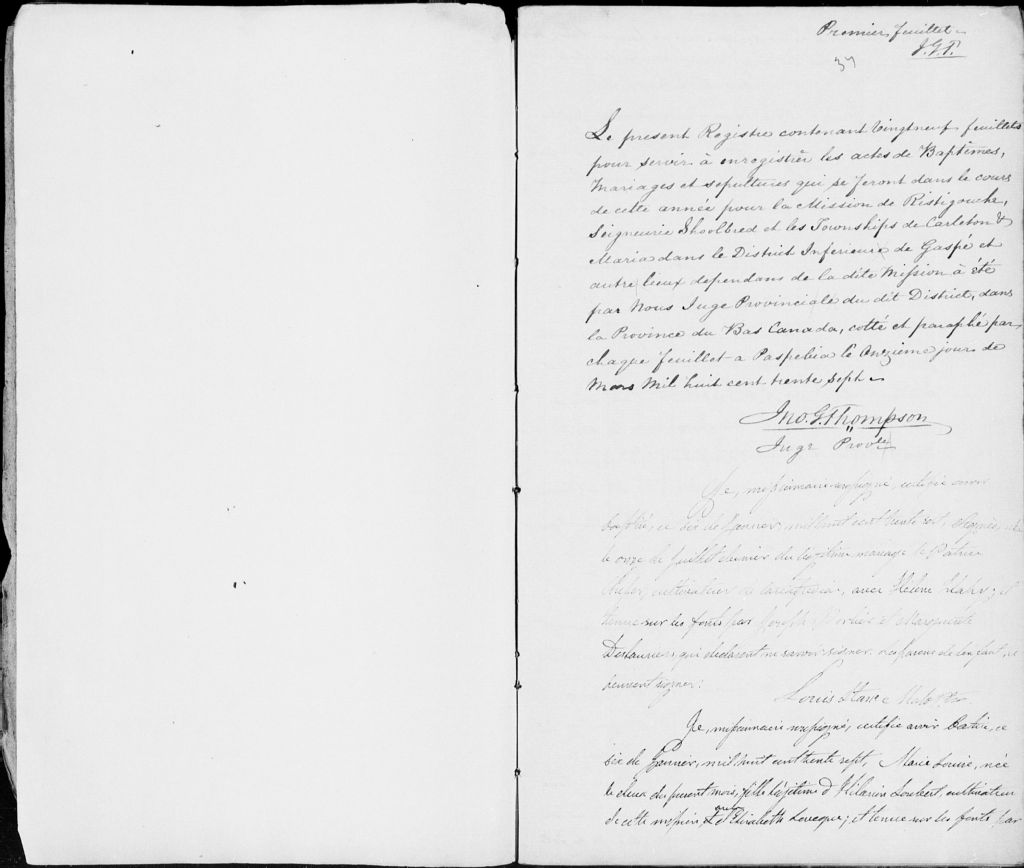 Premier feuillet
J.G.T.
37
Le present Registre contenant Vingtneuf feuillets
pour servir à enregistrer les actes de Baptêmes,
Mariages et sepultures qui se feront dans le cours
de cette année pour la Mission de Ristigouche,
Seigneurie Shoolbred et les Townships de Carleton &
Maria dans le District Inferieure de Gaspé et
autre lieux dependans de la dite Mission à été
par Nous Juge Provinciale du dit District, dans
la Province du Bas Canada, cotté et paraphé par
chaque feuillet a Paspebia le Onzieme jour de
Mars Mil huit cent trente Sept
Jno. G. Thompson
Juge Provle
Je, missionnaire soussigné, certifie avoir
baptisé, ce six de Janvier, mil huit cent trente sept,
le onze de Juillet dernier du légitime mariage de Patrice
cultivateur de avec Helène et
tenue sur les fonts par Joseph et Marguerite
Deslauriers, qui declarent ne savoir signer. Les parens de l'enfant ne
peuvent signer:
Louis Stanc Malo Ptre
Je, missionnaire soussigné, certifie avoir batisé, ce
six de Janvier, mil huit cent trente sept, Marie Louise, née
le deux du present mois, fille légitime d'Hilarion Loubert, cultivateur
de cette mission, et d'Elisabeth Levecque; et tenue sur les fonts par